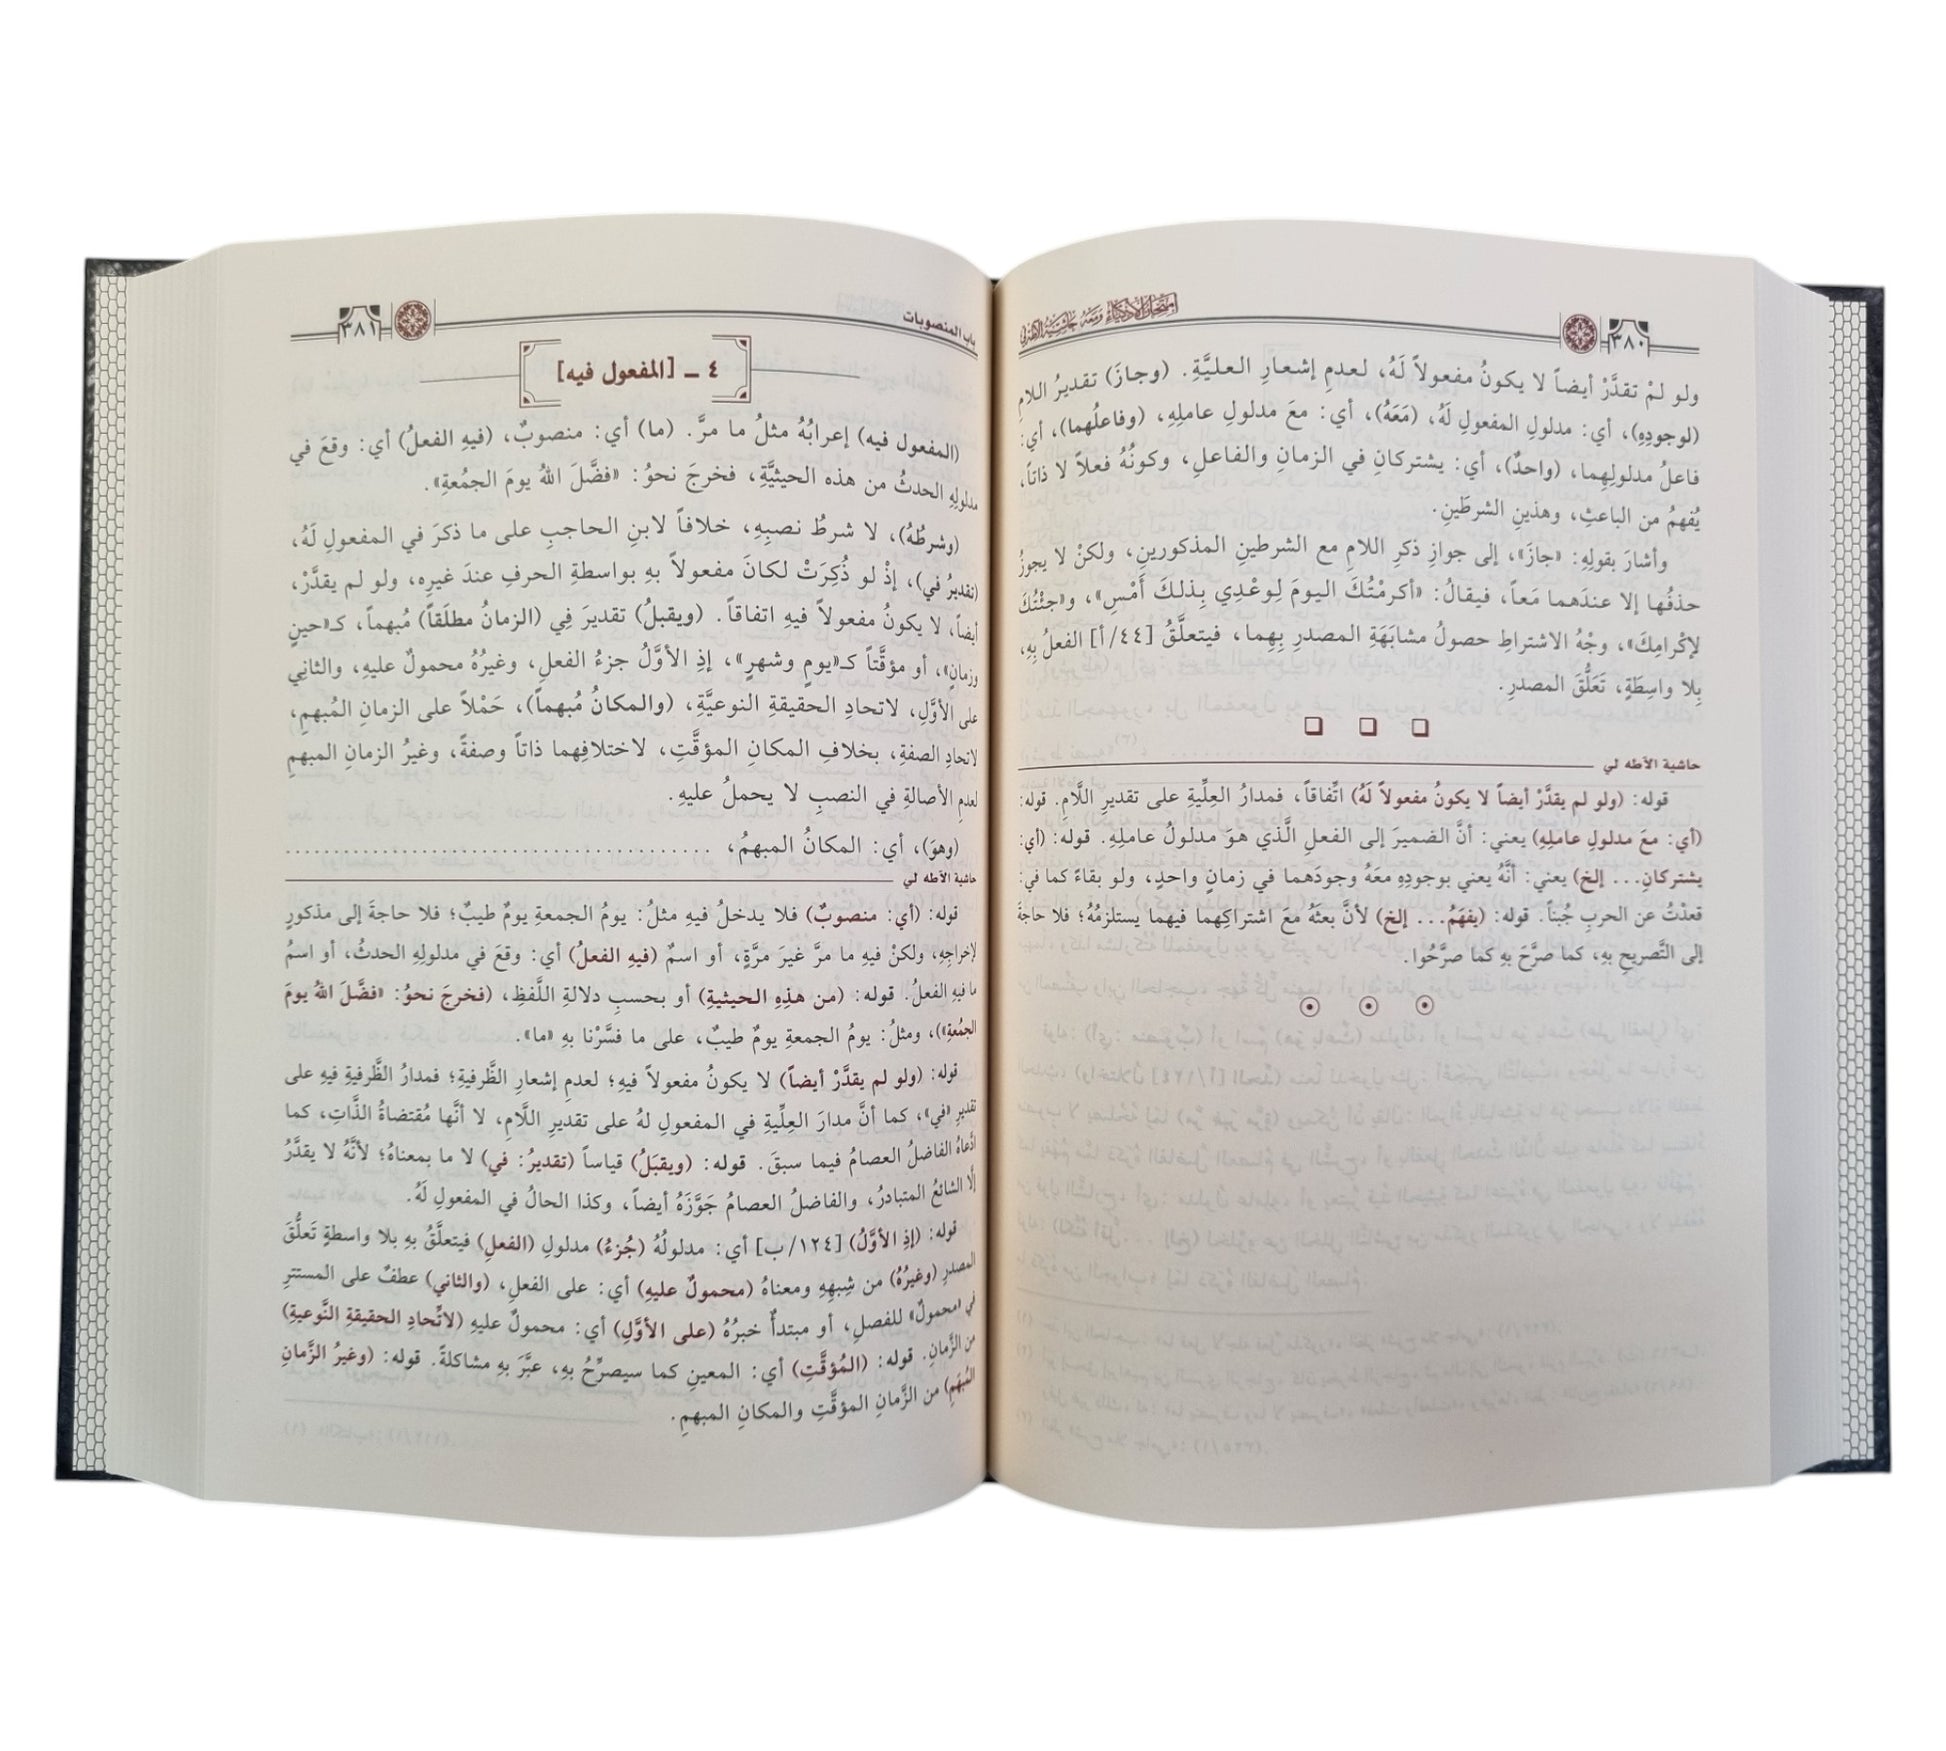 امتحان الأذكياء ومعه حاشية الأطه لي
٣٨٠
ولو لمْ تقدَّرْ أيضاً لا يكونُ مفعولاً لَهُ، لعدمِ إشعارِ العليَّةِ. (وجازَ) تقديرُ اللامِ
(لوجودِهِ)، أي: مدلولِ المفعولِ لَهُ، (مَعَهُ)، أي: معَ مدلولِ عاملِهِ، (وفاعلُهما)، أي:
فاعلُ مدلولِهِما، (واحدٌ)، أي: يشتركانِ في الزمانِ والفاعلِ، وكونُهُ فعلاً لا ذاتاً،
يُفهمُ من الباعثِ، وهذينِ الشرطَينِ.
وأشارَ بقولِهِ: «جازَ»، إلى جوازِ ذكرِ اللامِ مع الشرطينِ المذكورينِ، ولكنْ لا يجوزُ
حذفُها إلا عندَهما مَعاً، فيقالُ: «أكرمْتُكَ اليومَ لِوعْدِي بِذلكَ أَمْسِ»، و«جئْتُكَ
لإكْرامِكَ»، وجْهُ الاشتراطِ حصولُ مشابَهَةِ المصدرِ بِهِما، فيتعلَّقُ [٤٤/أ] الفعلُ بِهِ،
بِلا واسِطَةٍ، تَعَلُّقَ المصدرِ.
حاشية الأطه لي
قوله: (ولو لم يقدَّرْ أيضاً لا يكونُ مفعولاً لَهُ) اتِّفاقاً، فمدارُ العِلِّيةِ على تقديرِ اللَّامِ. قوله:
(أي: معَ مدلولِ عاملِهِ) يعني: أنَّ الضميرَ إلى الفعلِ الَّذي هوَ مدلولُ عاملِهِ. قوله: (أي:
يشتركانِ... إلخ) يعني: أنَّهُ يعني بوجودِهِ معَهُ وجودَهما في زمانٍ واحدٍ، ولو بقاءً كما في:
قعدْتُ عن الحربِ جُبناً. قوله: (يفهَمُ... إلخ) لأنَّ بعثَهُ معَ اشتراكِهما فيهما يستلزمُهُ؛ فلا حاجةَ
إلى التَّصريحِ بهِ، كما صرَّحَ بهِ كما صرَّحُوا.
باب المنصوبات
٣٨١
٤ ـ [المفعول فيه]
(المفعول فيه) إعرابُهُ مثلُ ما مرَّ. (ما) أي: منصوبٌ، (فيهِ الفعلُ) أي: وقعَ في
مدلولِهِ الحدثُ من هذه الحيثيَّةِ، فخرجَ نحوُ: «فضَّلَ اللهُ يومَ الجمُعةِ».
(وشرطُهُ)، لا شرطُ نصبِهِ، خلافاً لابنِ الحاجبِ على ما ذكرَ في المفعولِ لَهُ،
(تقديرُ في)، إذْ لو ذُكِرَتْ لكانَ مفعولاً بهِ بواسطةِ الحرفِ عندَ غيرِهِ، ولو لم يقدَّرْ،
أيضاً، لا يكونُ مفعولاً فيهِ اتفاقاً. (ويقبلُ) تقديرَ فِي (الزمانُ مطلَقاً) مُبهماً، كـ«حينٍ
وزمانٍ»، أو مؤقَّتاً كـ«يومٍ وشهرٍ»، إذِ الأوَّلُ جزءُ الفعلِ، وغيرُهُ محمولٌ عليهِ، والثانِي
على الأوَّلِ، لاتحادِ الحقيقةِ النوعيَّةِ، (والمكانُ مُبهماً)، حَمْلاً على الزمانِ المُبهمِ،
لاتحادِ الصفةِ، بخلافِ المكانِ المؤقَّتِ، لاختلافِهما ذاتاً وصفةً، وغيرُ الزمانِ المبهمِ
لعدمِ الأصالةِ في النصبِ لا يحملُ عليهِ.
(وهوَ)، أي: المكانُ المبهمُ، ........................................
حاشية الأطه لي
قوله: (أي: منصوبٌ) فلا يدخلُ فيهِ مثلُ: يومُ الجمعةِ يومٌ طيبٌ؛ فلا حاجةَ إلى مذكورٍ
لإخراجِهِ، ولكنْ فيهِ ما مرَّ غيرَ مرَّةٍ، أو اسمٌ (فيهِ الفعلُ) أي: وقعَ في مدلولِهِ الحدثُ، أو اسمُ
ما فيهِ الفعلُ. قوله: (من هذِهِ الحيثيةِ) أو بحسبِ دلالةِ اللَّفظِ، (فخرجَ نحوُ: «فضَّلَ اللهُ يومَ
الجمُعةِ»)، ومثلُ: يومُ الجمعةِ يومٌ طيبٌ، على ما فسَّرْنا بهِ «ما».
قوله: (ولو لم يقدَّرْ أيضاً) لا يكونُ مفعولاً فيهِ؛ لعدمِ إشعارِ الظَّرفيةِ؛ فمدارُ الظَّرفيةِ فيهِ على
تقديرِ «في»، كما أنَّ مدارَ العِلِّيةِ في المفعولِ لهُ على تقديرِ اللَّامِ، لا أنَّها مُقتضاةُ الذَّاتِ، كما
ادَّعاهُ الفاضلُ العصامُ فيما سبقَ. قوله: (ويقبَلُ) قياساً (تقديرُ: في) لا ما بمعناهُ؛ لأنَّهُ لا يقدَّرُ
إلَّا الشائعُ المتبادرُ، والفاضلُ العصامُ جَوَّزَهُ أيضاً، وكذا الحالُ في المفعولِ لَهُ.
قوله: (إذِ الأوَّلُ) [١٢٤/ب] أي: مدلولُهُ (جُزءُ) مدلولِ (الفعلِ) فيتعلَّقُ بهِ بلا واسطةٍ تَعلُّقَ
المصدرِ (وغيرُهُ) من شِبهِهِ ومعناهُ (محمولٌ عليهِ) أي: على الفعلِ، (والثاني) عطفٌ على المستترِ
في «محمولٌ» للفصلِ، أو مبتدأٌ خبرُهُ (على الأوَّلِ) أي: محمولٌ عليهِ (لاتِّحادِ الحقيقةِ النَّوعيةِ)
من الزَّمانِ. قوله: (المُؤقَّتِ) أي: المعينِ كما سيصرِّحُ بهِ، عبَّرَ بهِ مشاكلةً. قوله: (وغيرُ الزَّمانِ
المُبهَمِ) من الزَّمانِ المؤقَّتِ والمكانِ المبهمِ.